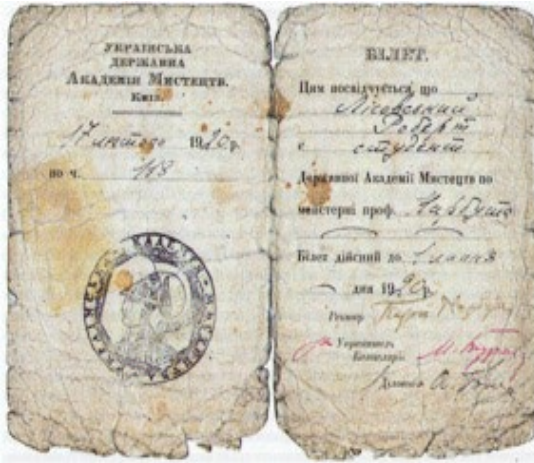 УКРАЇНСЬКА
ДЕРЖАВНА
АКАДЕМІЯ МИСТЕЦТВ.
КИЇВ.
17 лютого 1920 р.
по ч. 168
БІЛЕТ.
Цим посвідчується, що
Лісовський
Роберт
є студент
Державної Академії Мистецтв по
майстерні проф. Нарбута
Білет дійсний до 1 мая
дня 1920 р.
Ректор
Управитель
Канцелярії
Діловод